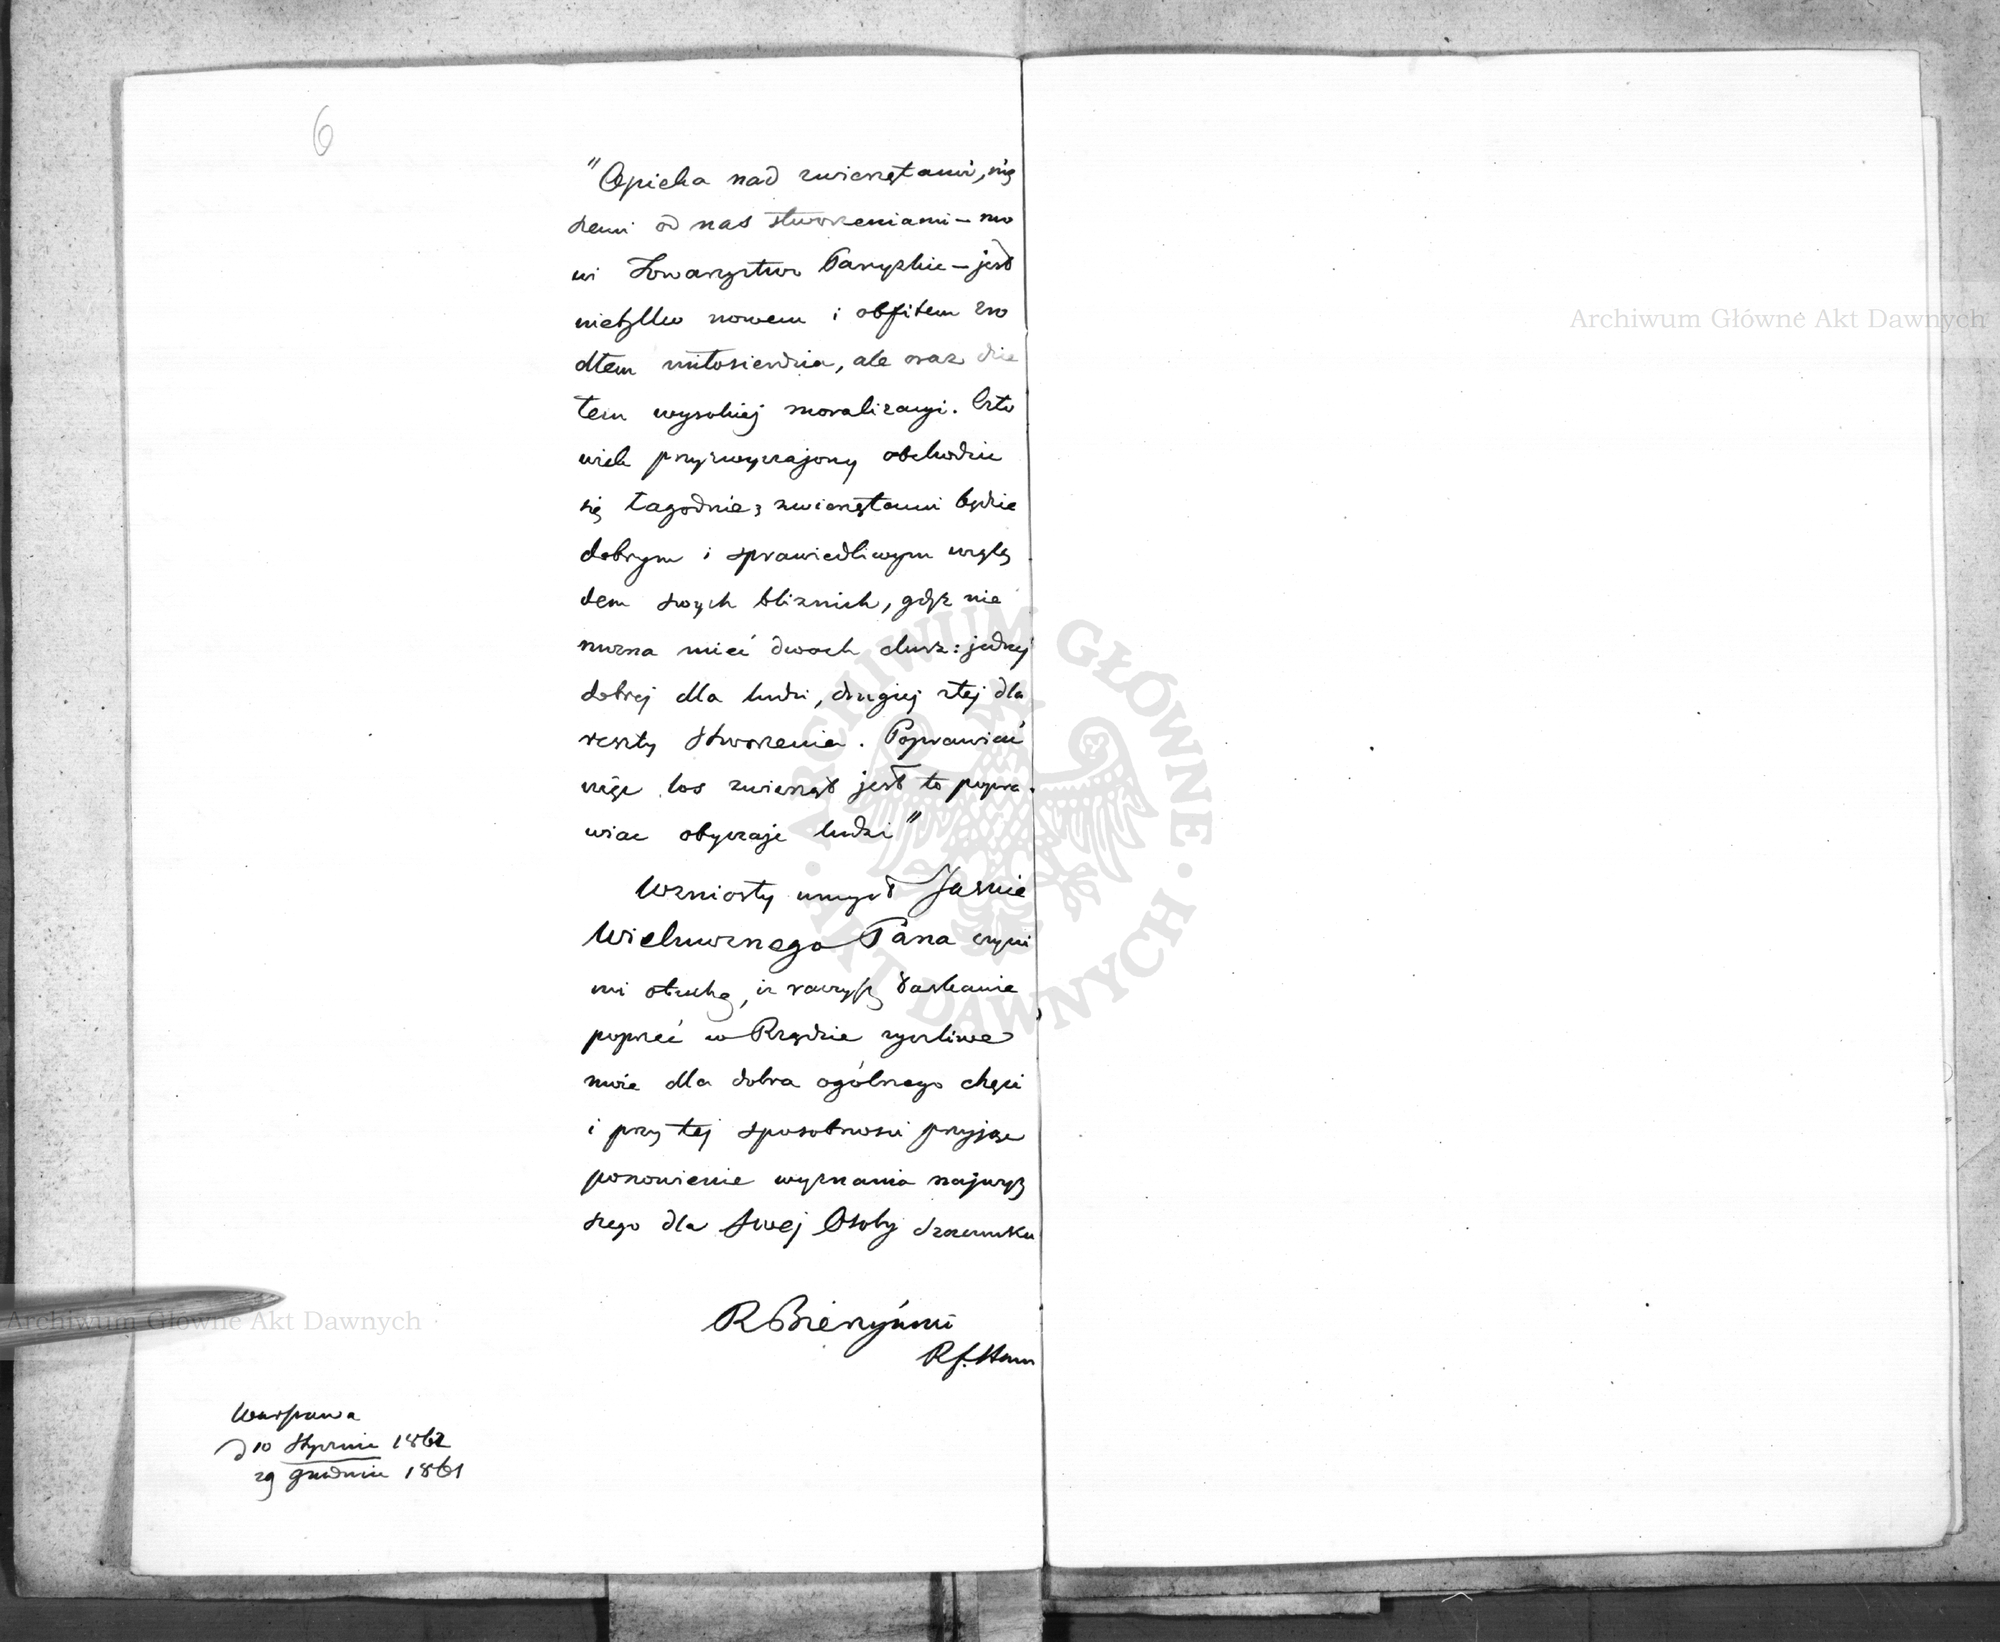 6
"Opieka nad zwierzętami, niż
szemi od nas stworzeniami – mo
wi Towarzystwo Paryzkie – jest
nietylko nowem i obfitem zro
dłem miłosierdzia, ale oraz dzie
łem wysokiej moralizacyi. Czło
wiek przyzwyczajony obchodzić
się łagodnie z zwierzętami będzie
dobrym i sprawiedliwym wzglę
dem swych bliznich, gdyż nie
można mieć dwoch dusz: jednej
dobrej dla ludzi, drugiej złej dla
reszty stworzenia. Poprawiać
więc los zwierząt jest to popra-
wiac obyczaje ludzi"
Wzniosły umysł Jasnie
Wielmoznego Pana czyni
mi otuchę, iz raczysz łaskawie
poprzeć w Rządzie zyczliwe
moie dla dobra ogólnego chęci
i przy tej sposobnosci przyjąc
ponowienie wyznania najwyż
szego dla Swej Osoby szacunku
Warszawa
d 10 Stycznia 1862
29 grudnia 1861
Archiwum Główne Akt Dawnych
Archiwum Główne Akt Dawnych
ARCHIWUM GŁÓWNE
AKT DAWNYCH